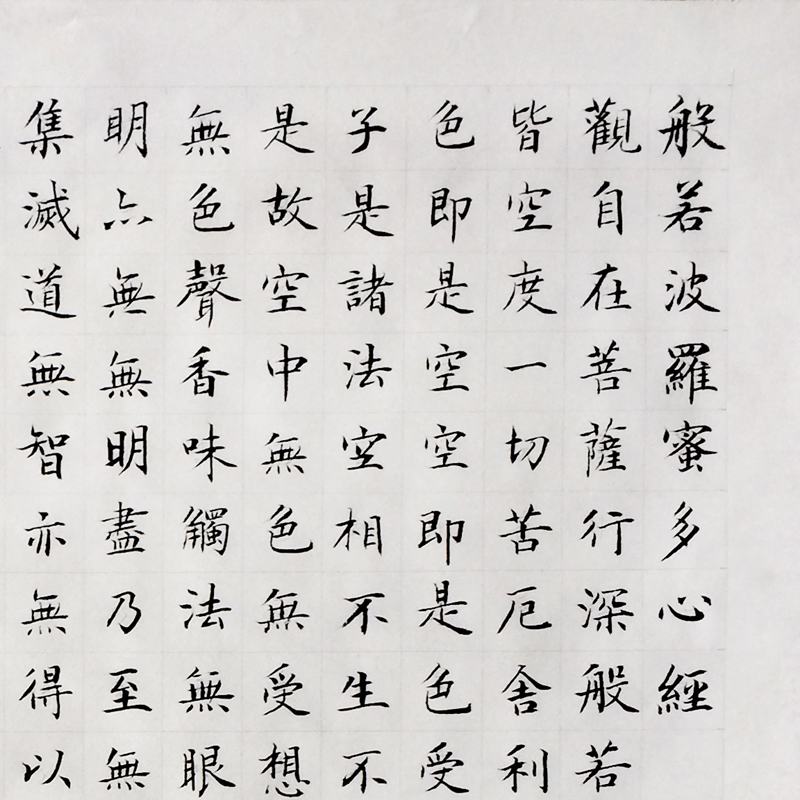 般若波羅蜜多心經
觀自在菩薩行深般若
皆空度一切苦厄舍利
色即是空空即是色受
子是諸法空相不生不
是故空中無色無受想
無色聲香味觸法無眼
明亦無無明盡乃至無
集滅道無智亦無得以